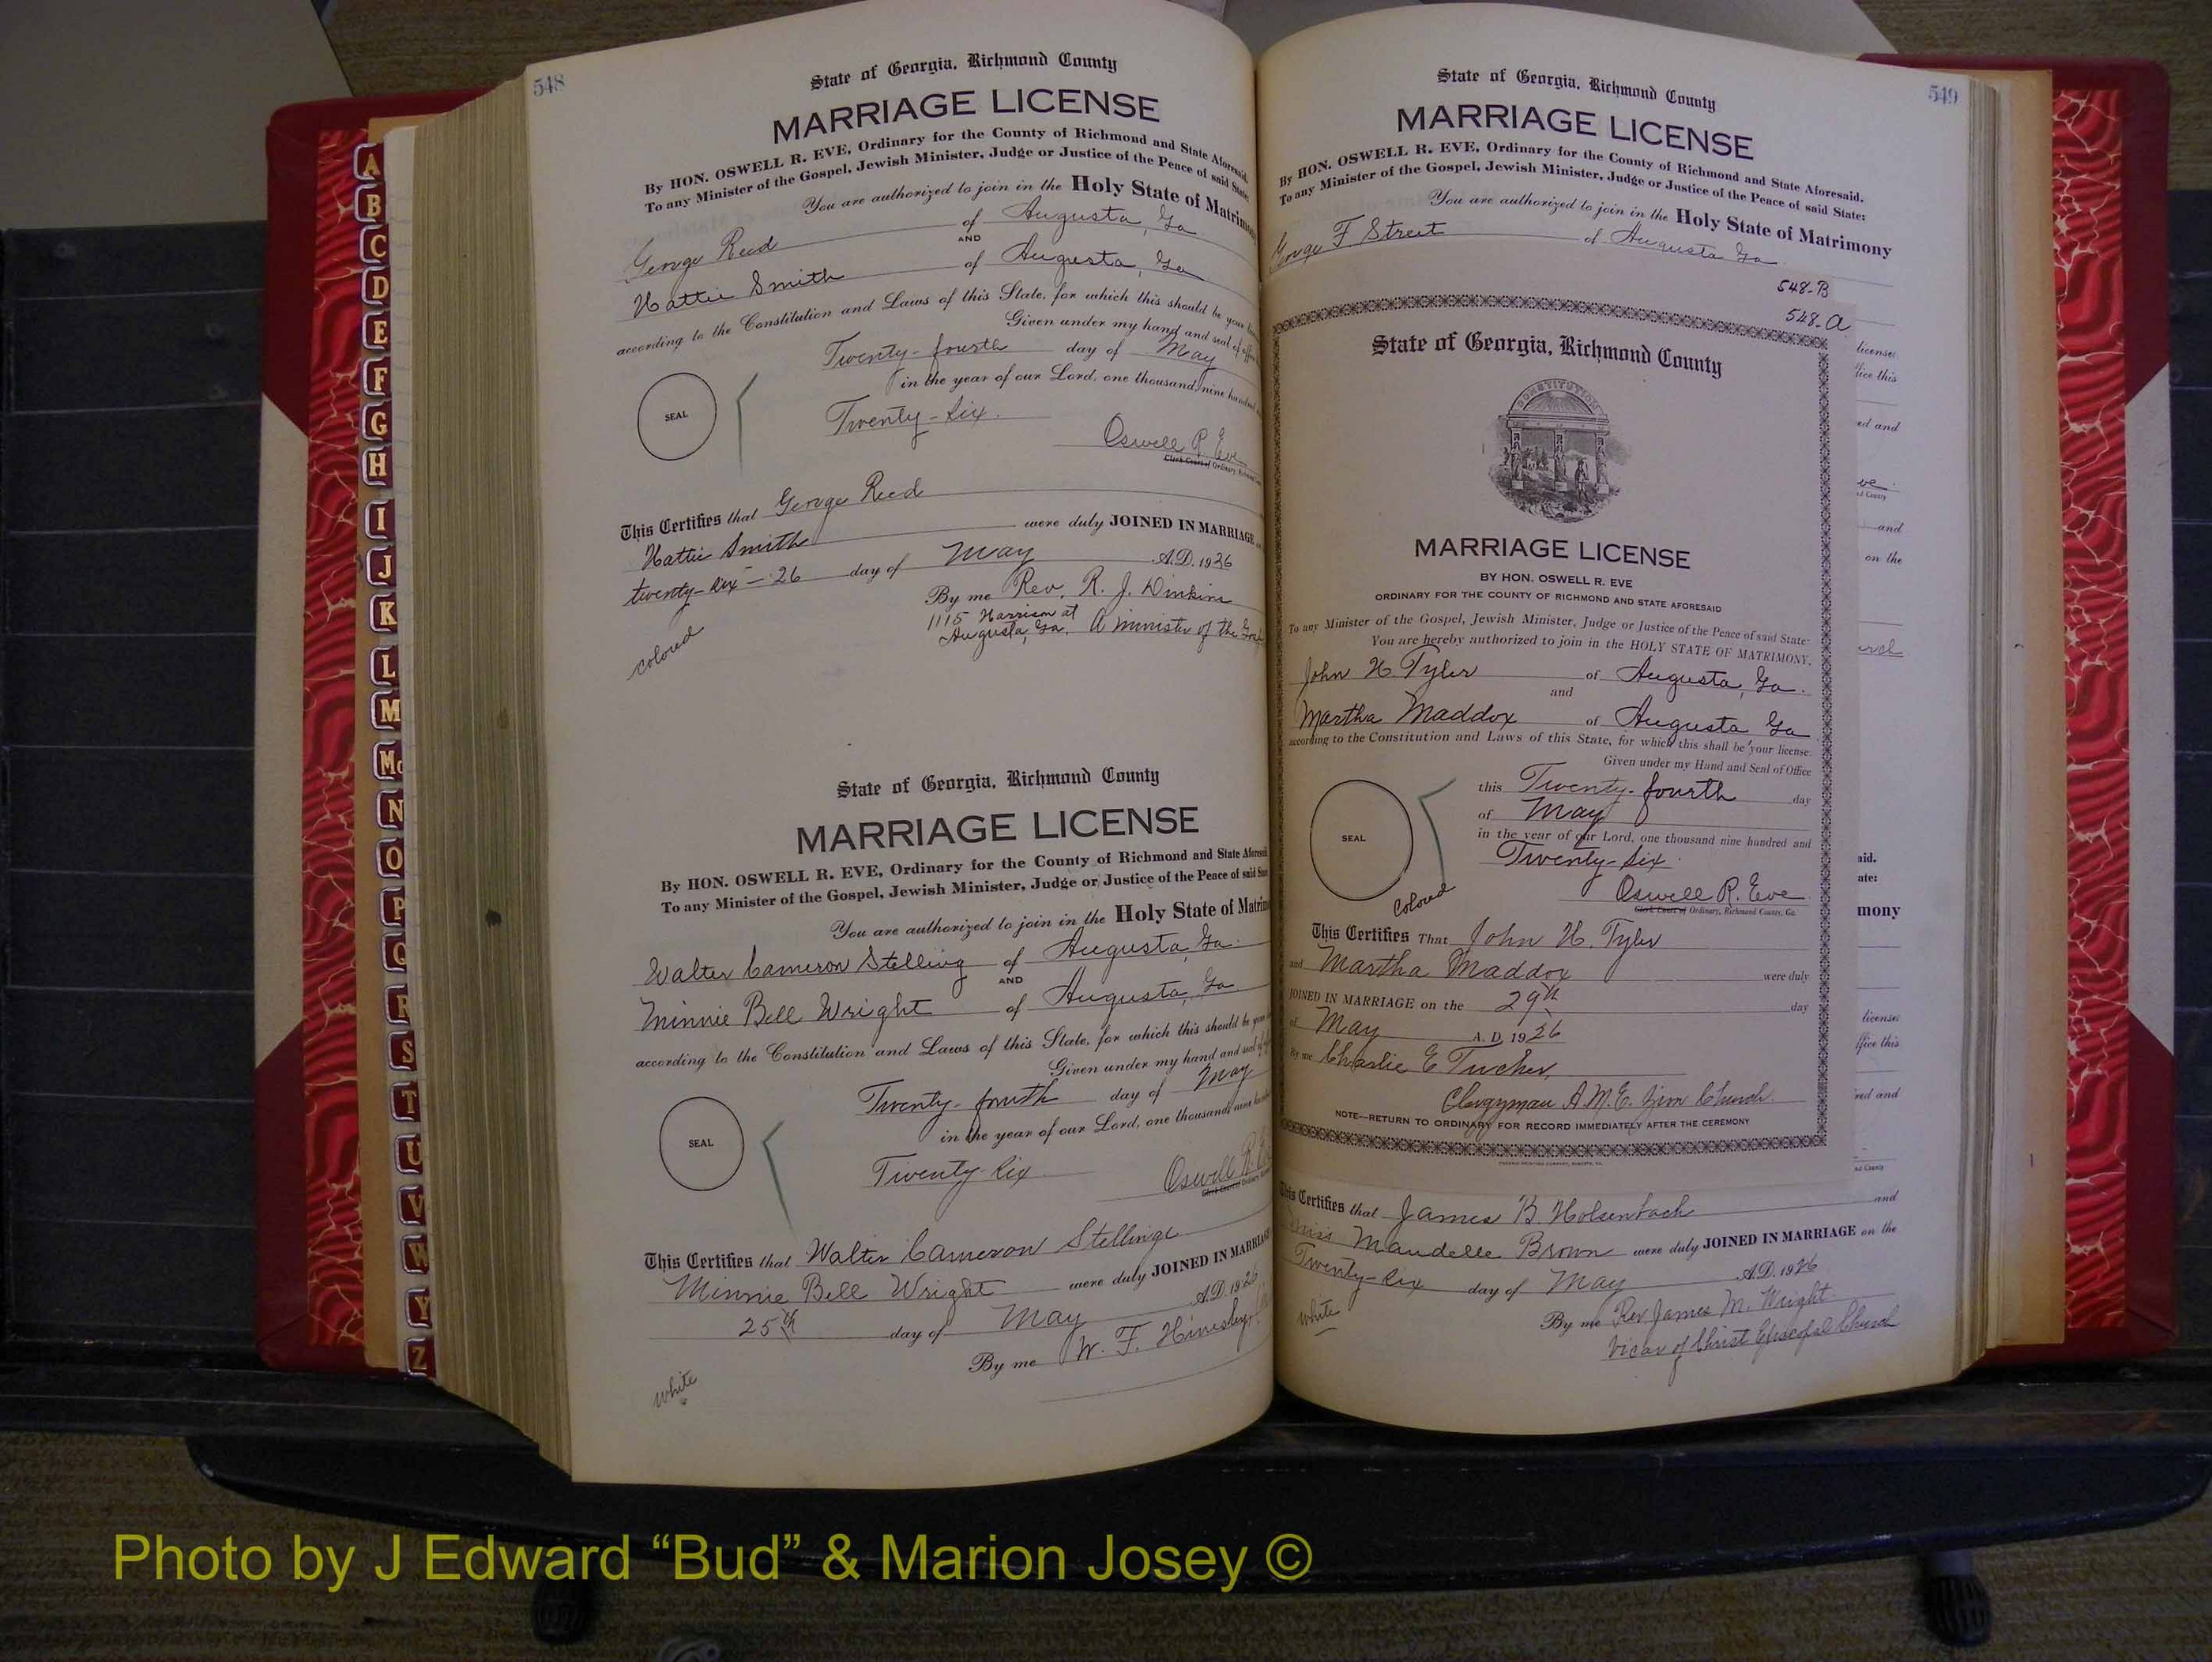 548
State of Georgia, Richmond County
MARRIAGE LICENSE
By HON. OSWELL R. EVE, Ordinary for the County of Richmond and State Aforesaid.
To any Minister of the Gospel, Jewish Minister, Judge or Justice of the Peace of said State:
You are authorized to join in the Holy State of Matrimony
George Reed of Augusta, Ga
AND
Hattie Smith of Augusta, Ga
according to the Constitution and Laws of this State, for which this should be your
Given under my hand and seal of
Twenty-fourth day of May
in the year of our Lord, one thousand nine hundred
Twenty-Six.
SEAL
Oswell R. Eve
Clerk Court of Ordinary,
This Certifies that George Reed
Hattie Smith were duly JOINED IN MARRIAGE
twenty-six - 26 day of May A.D. 1926
By me Rev. R. J. Dinkins
1115 Harrison at
Augusta, Ga. A minister of the
colored
State of Georgia, Richmond County
MARRIAGE LICENSE
By HON. OSWELL R. EVE, Ordinary for the County of Richmond and State
To any Minister of the Gospel, Jewish Minister, Judge or Justice of the Peace of said
You are authorized to join in the Holy State of
Walter Cameron Stelling of Augusta, Ga.
AND
Minnie Bell Wright of Augusta, Ga
according to the Constitution and Laws of this State, for which this should be
Given under my hand and seal
Twenty-fourth day of May
in the year of our Lord, one thousand nine
Twenty-Six
SEAL
Oswell R.
This Certifies that Walter Cameron Stelling
Minnie Bell Wright were duly JOINED IN MARRIAGE
25th day of May A.D. 1926
By me W. F. Hinesley
white
549
State of Georgia, Richmond County
MARRIAGE LICENSE
By HON. OSWELL R. EVE, Ordinary for the County of Richmond and State Aforesaid.
To any Minister of the Gospel, Jewish Minister, Judge or Justice of the Peace of said State:
You are authorized to join in the Holy State of Matrimony
George F Street of Augusta Ga
548-B
548-A
State of Georgia, Richmond County
CONSTITUTION
MARRIAGE LICENSE
BY HON. OSWELL R. EVE
ORDINARY FOR THE COUNTY OF RICHMOND AND STATE AFORESAID
To any Minister of the Gospel, Jewish Minister, Judge or Justice of the Peace of said State:
You are hereby authorized to join in the HOLY STATE OF MATRIMONY,
John H. Tyler of Augusta, Ga.
and
Martha Maddox of Augusta Ga
according to the Constitution and Laws of this State, for which this shall be your license.
Given under my Hand and Seal of Office
this Twenty-fourth day
of May
in the year of our Lord, one thousand nine hundred and
Twenty-Six.
SEAL
Oswell R. Eve
Clerk Court of Ordinary, Richmond County, Ga.
colored
This Certifies That John H. Tyler
and Martha Maddox were duly
JOINED IN MARRIAGE on the 29th day
of May A. D. 1926
By me Charlie E Tucker,
Clergyman A.M.E. Zion Church
NOTE—RETURN TO ORDINARY FOR RECORD IMMEDIATELY AFTER THE CEREMONY
license:
ffice this
ed and
and
on the
aid.
ate:
mony
license:
ffice this
red and
This Certifies that James B Holsenback and
Miss Maudelle Brown were duly JOINED IN MARRIAGE on the
Twenty-Six day of May A.D. 1926
By me Rev James M. Wright
Vicar of Christ Episcopal Church
white
A
B
C
D
E
F
G
H
I
J
K
L
M
Mc
N
O
P
Q
R
S
T
U
V
W
Y
Z
Photo by J Edward “Bud” & Marion Josey ©